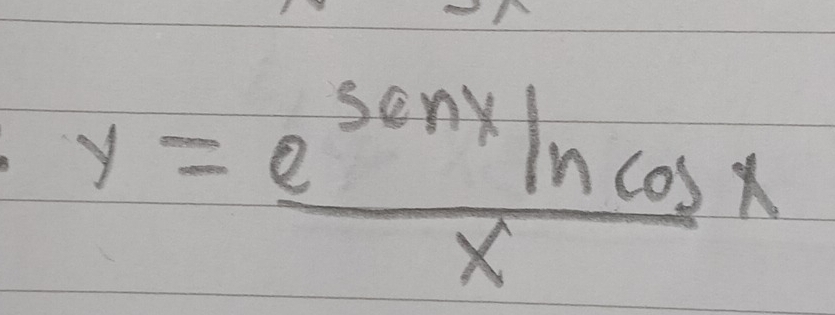 y = e^senx ln cos x
x